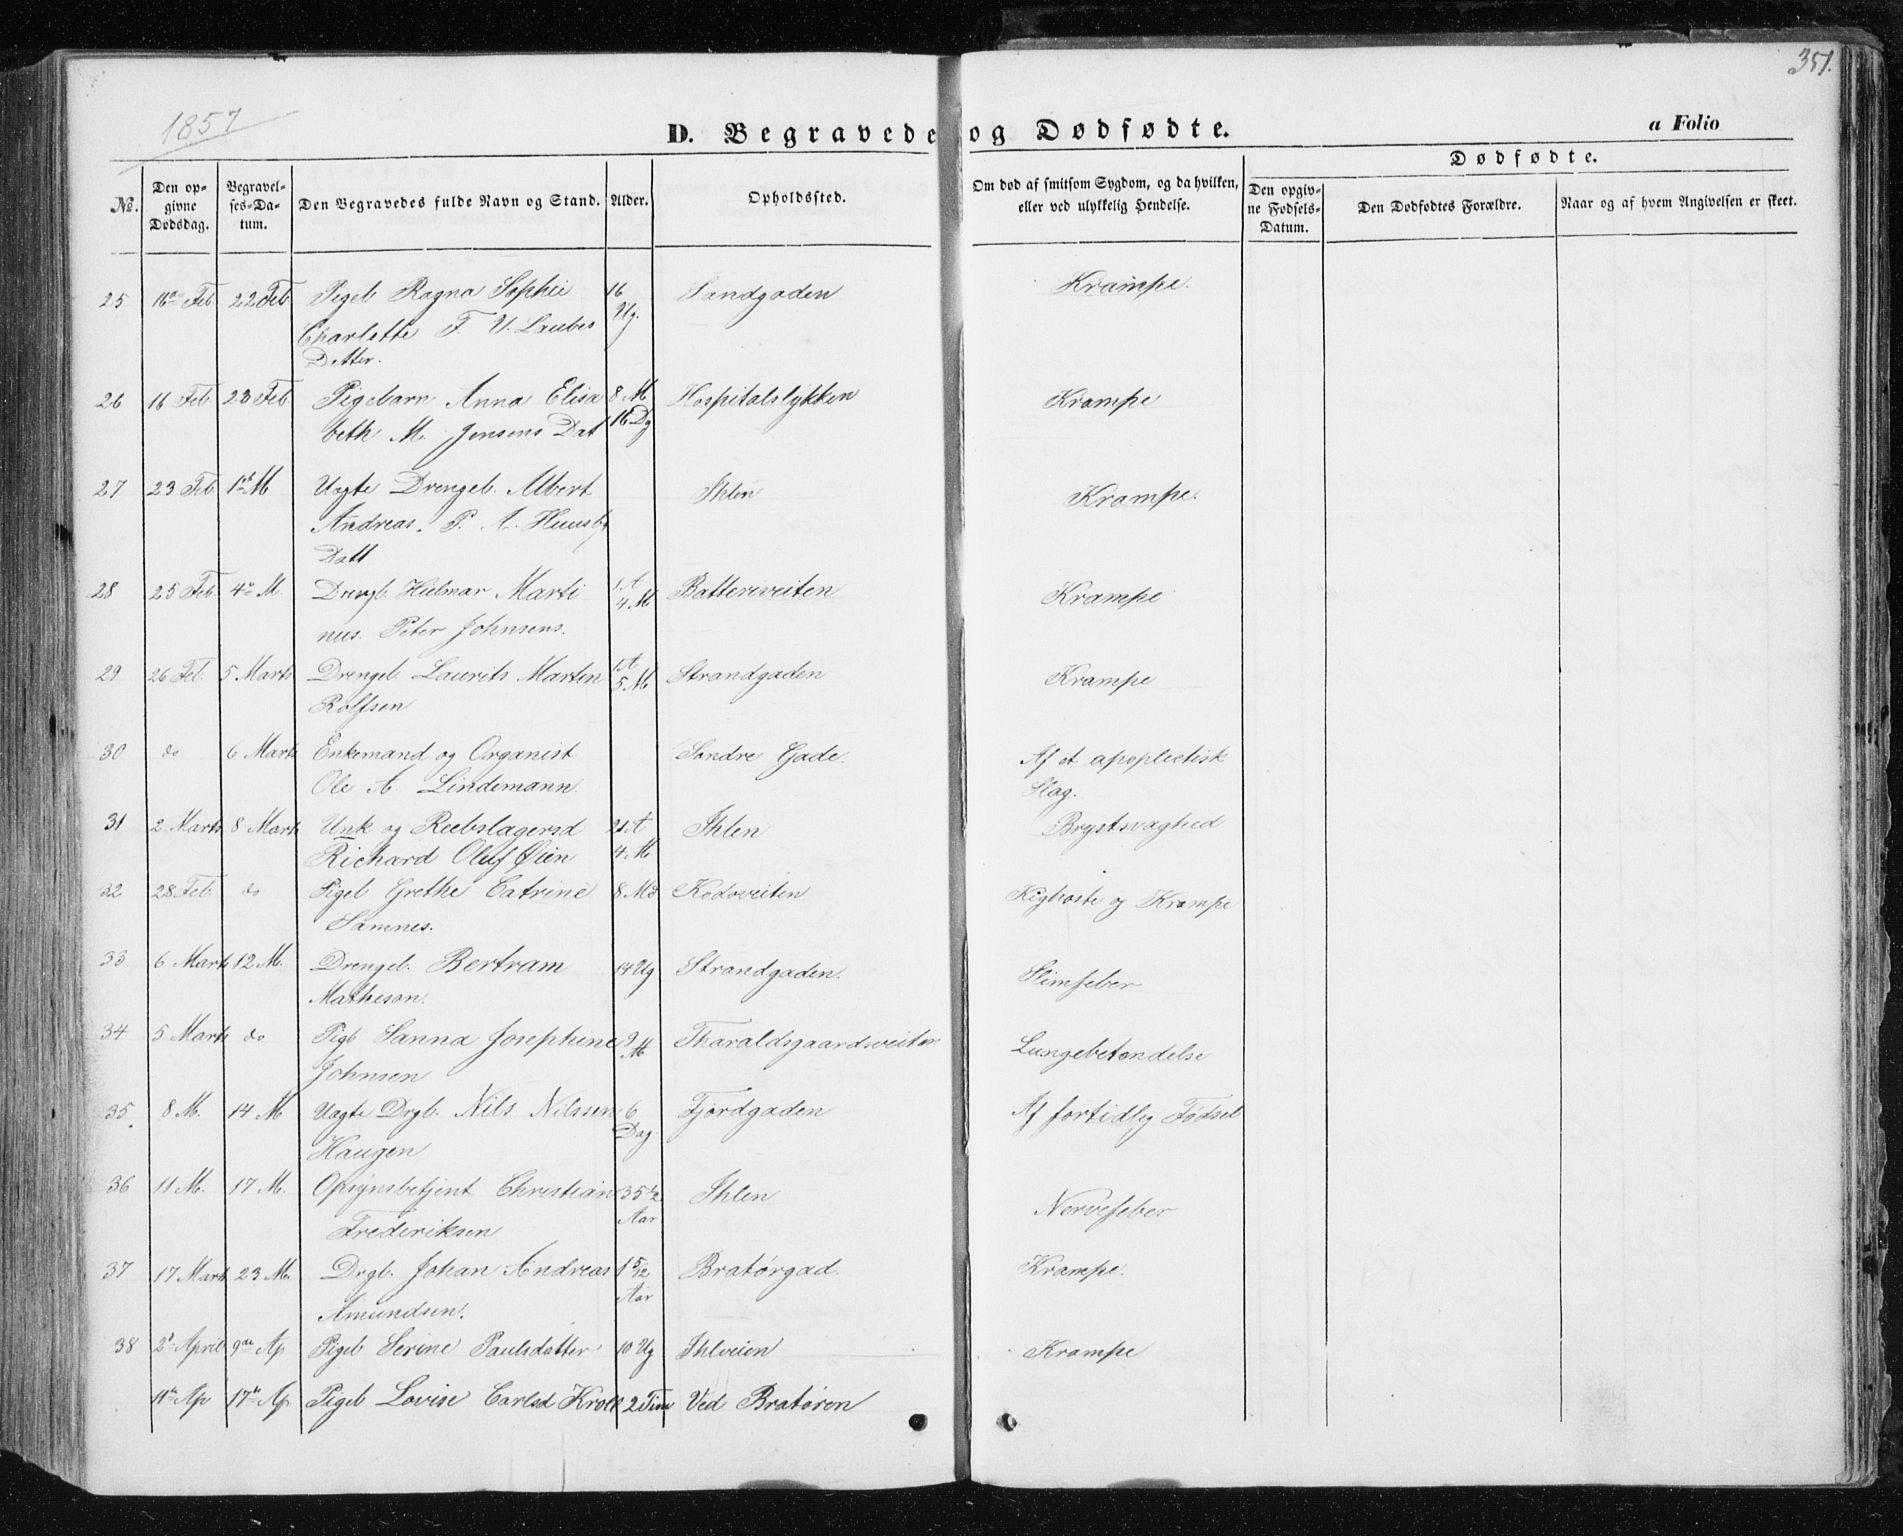 351.
1857
D. Begravede og Dødfødte.
a Folio
Dødfødte.
No.
Den op-
givne
Dødsdag.
Begravel-
ses-Da-
tum.
Den Begravedes fulde Navn og Stand.
Alder.
Opholdssted.
Om død af smitsom Sygdom, og da hvilken,
eller ved ulykkelig Hendelse.
Den opgiv-
ne Fødsels-
Datum.
Den Dødfødtes Forældre.
Naar og af hvem Angivelsen er skeet.
25 16de Feb 22 Feb Pigeb Ragna Sophie 16 Sandgaden Krampe.
Charlotte F. V. Laubes Ug.
Datter.
26 16 Feb 23 Feb Pigebarn Anna Elisa 8 M Hospitalslykken Krampe
beth M. Jensens Dat 16 Dg
27 23 Feb. 1st M Uægte Drengeb. Albert Ihlen Krampe.
Andreas. P. A. Huusby
Datt
28 25 Feb. 4de M. Drengb. Hielmar Marti 1 A Batteriveiten Krampe
nus. Peter Johnsens. 4 M
29 26 Feb. 5 Marts Drengeb. Laurits Martin 1 A Strandgaden Krampe
Rolfsen 5 M
30 do 6 Marts Enkemand og Organist Søndre Gade. Af et apoplectisk
Ole A. Lindemann. Slag.
31 2 Marts 8 Marts Unk og Reebslagersd 21 A Ihlen Brystsvaghed
Richard Oluf Øien 4 M
32 28 Feb. do Pigeb Grethe Catrine 8 Md Kodsveiten Kighoste og Krampe
Samnes.
33 6 Marts 12 M. Drengeb. Bertram 14 Ug Strandgaden. Slimfeber
Matheson.
34 5 Marts do Pigb Sanna Josephine 9 Tharaldsgaardsveiten Lungebetændelse
Johnsen M
35. 8 M. 14 M Uægte Drgb. Nils Nilssen 6 Fjordgaden Af fortidlig Fødsel
Haugen Dag
36 11 M. 17 M. Opsynsbetjent Christian 35 1/2 Ihlen Nervefeber
Frederiksen Aar
37 17 Marts 23 M. Drgb. Johan Andreas 1 5/12 Bratørgad. Krampe.
Amundsen. Aar
38 2d April 9de Ap Pigeb Serine Paulsdatter 10 Ug Ihlveien Krampe
11te Ap 17de Ap. Pigeb Lovise Carlsd Krolk 2 Tim Ved Bratøren